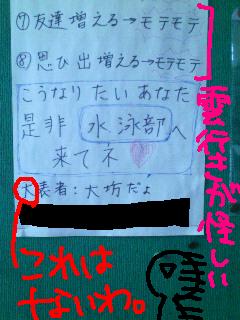 ⑦友達増える→モテモテ
⑧思ひ出増える→モテモテ
こうなりたいあなた
是非水泳部へ
来てネ
犬表者:大坊だょ
雲行きが怪しい
これは
ないわ。